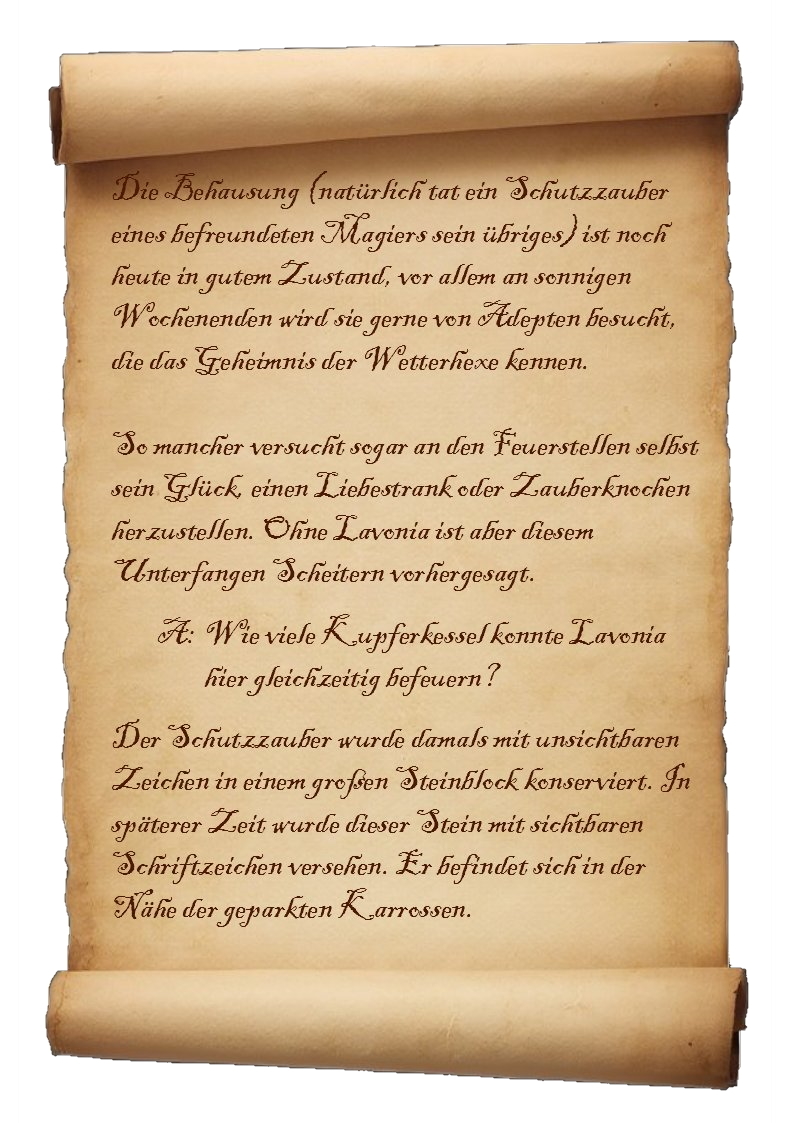 Die Behausung (natürlich tat ein Schutzzauber
eines befreundeten Magiers sein übriges) ist noch
heute in gutem Zustand, vor allem an sonnigen
Wochenenden wird sie gerne von Adepten besucht,
die das Geheimnis der Wetterhexe kennen.
So mancher versucht sogar an den Feuerstellen selbst
sein Glück, einen Liebestrank oder Zauberknochen
herzustellen. Ohne Lavonia ist aber diesem
Unterfangen Scheitern vorhergesagt.
A: Wie viele Kupferkessel konnte Lavonia
hier gleichzeitig befeuern?
Der Schutzzauber wurde damals mit unsichtbaren
Zeichen in einem großen Steinblock konserviert. In
späterer Zeit wurde dieser Stein mit sichtbaren
Schriftzeichen versehen. Er befindet sich in der
Nähe der geparkten Karrossen.